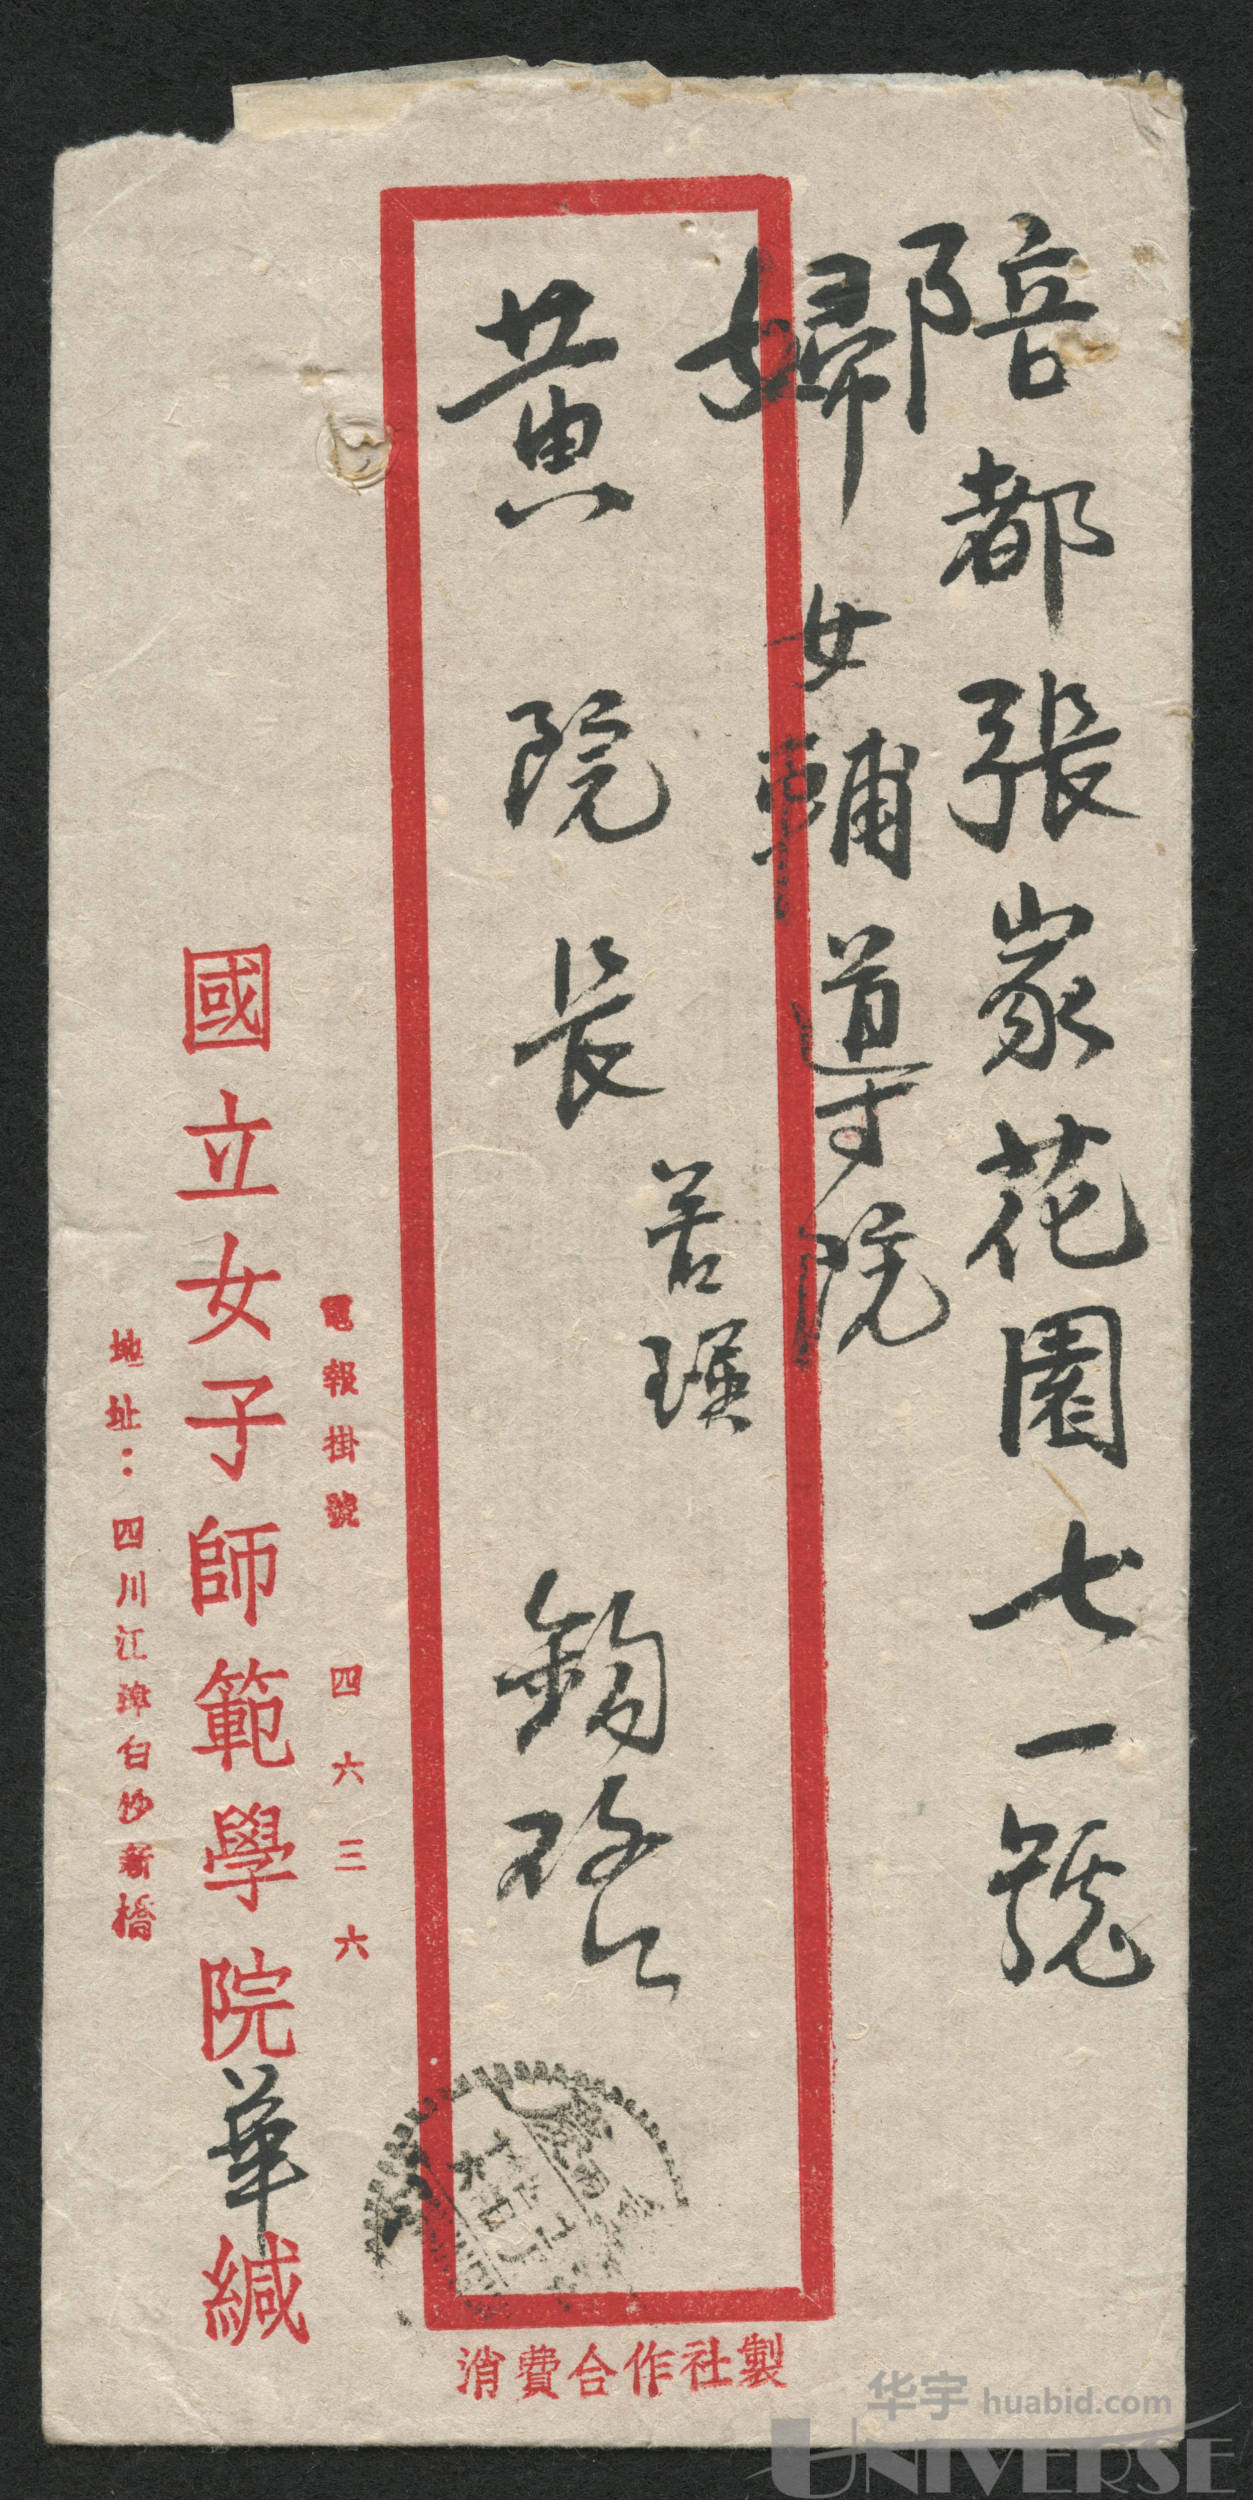 陪都張家花園七一號
婦女輔導院
黃院長
若瑾
鈞啓
電報掛號 四六三六
國立女子師範學院華緘
地址：四川江津白沙新橋
消費合作社製
华宇 huabid.com
UNIVERSE